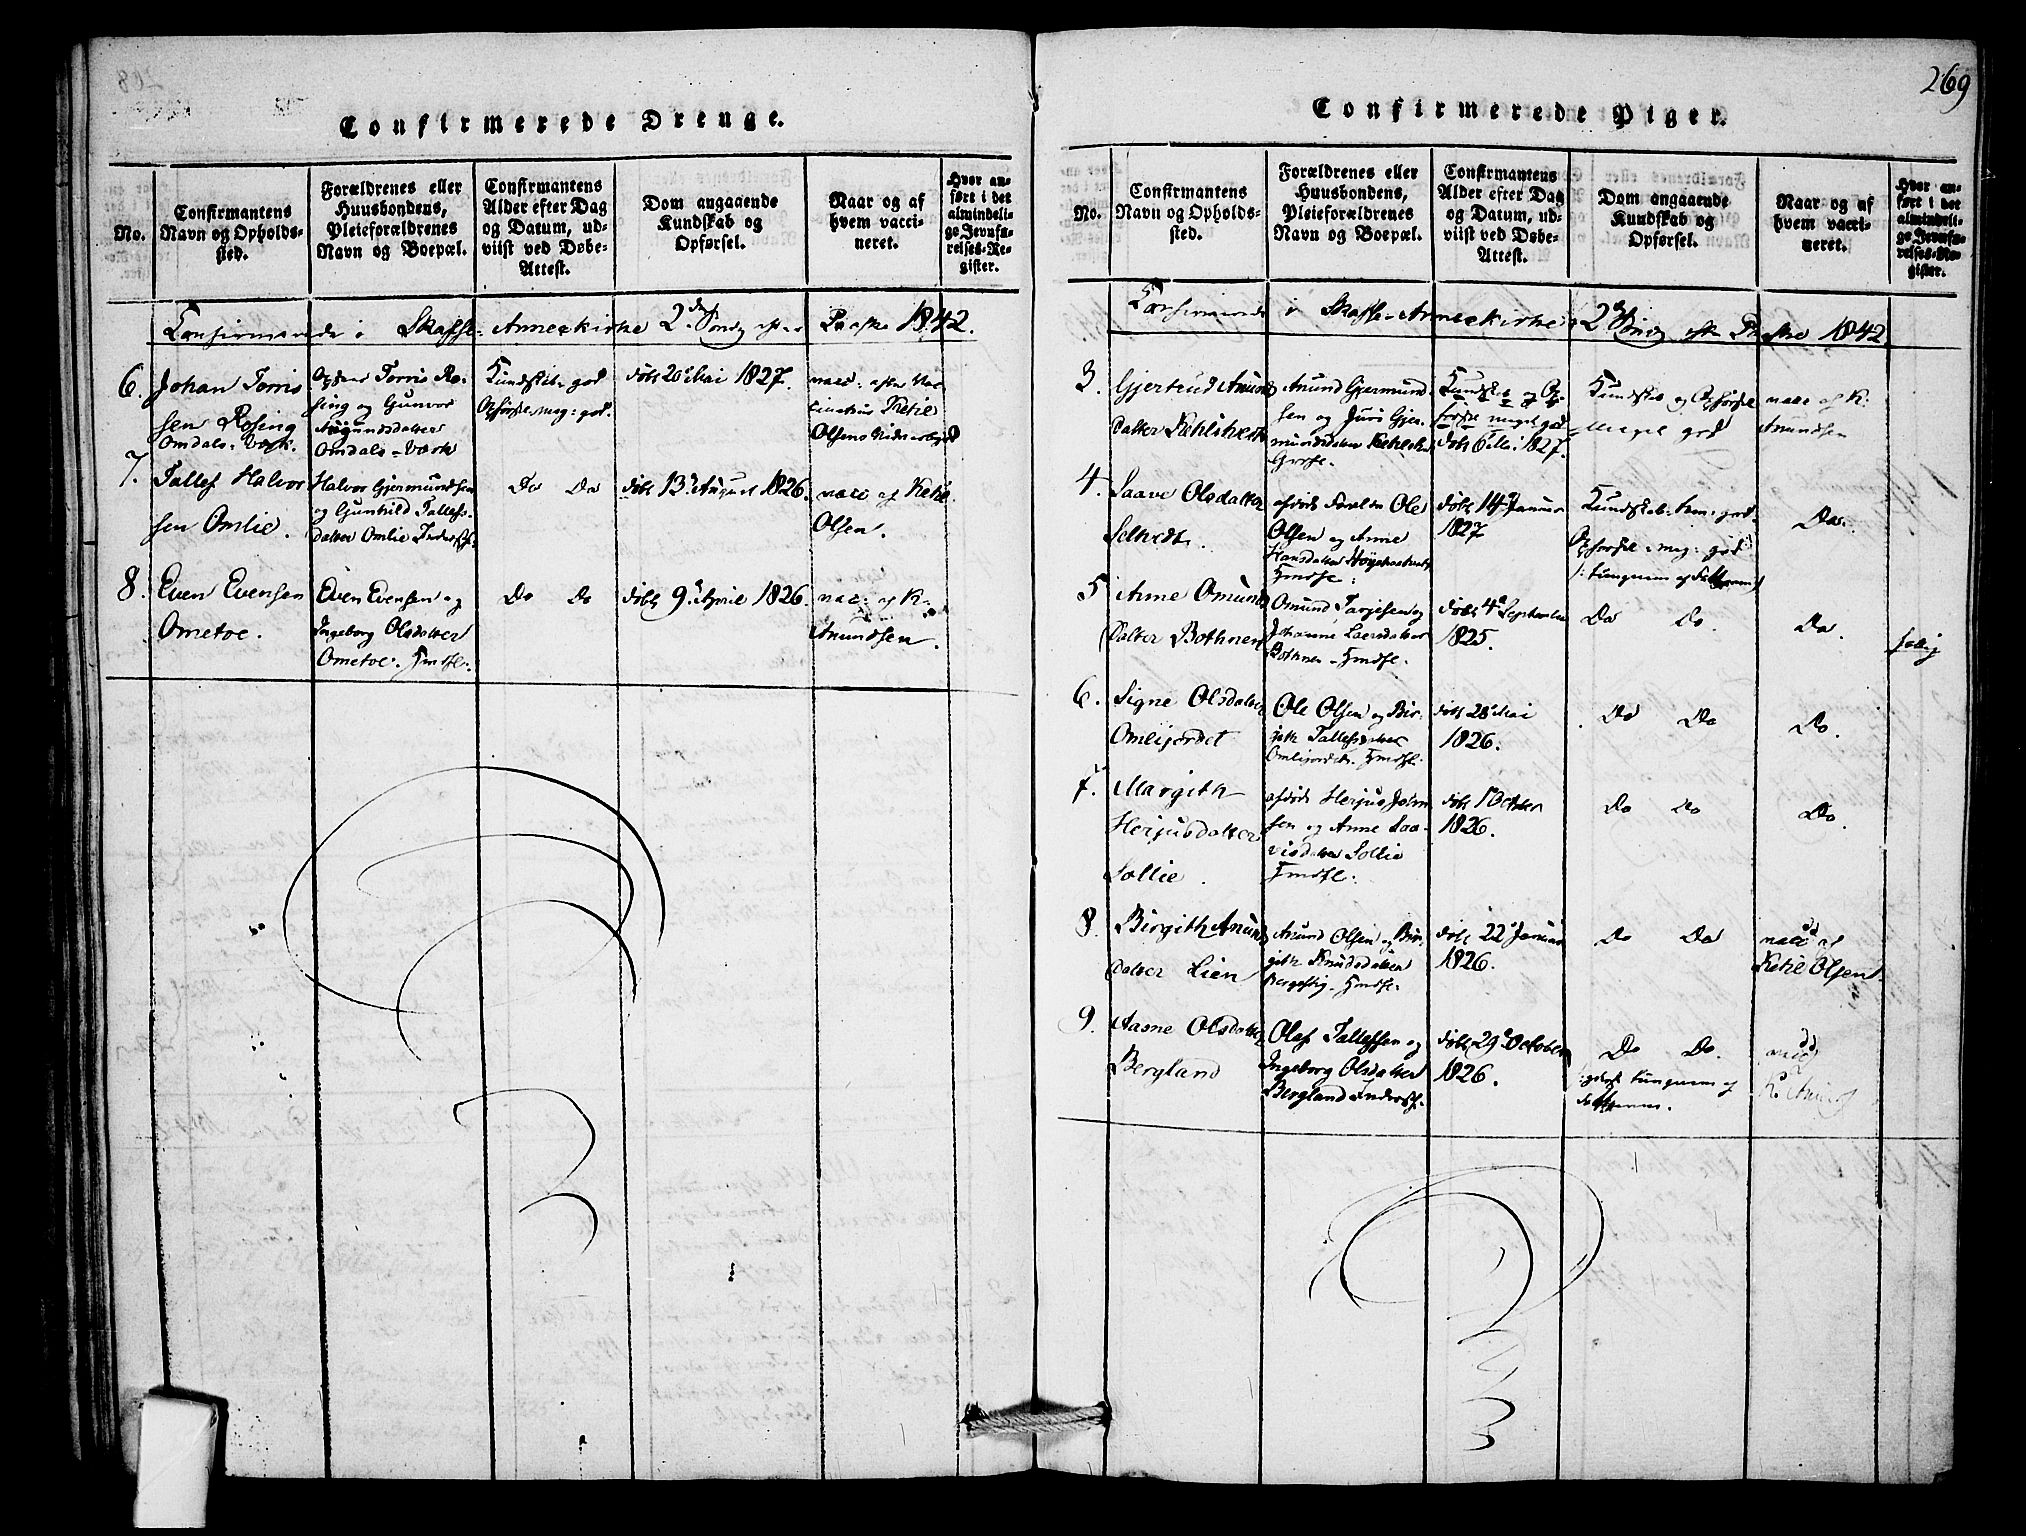 269
Confirmerede Drenge.
No.
Confirmantens
Navn og Opholds-
sted.
Forældrenes eller
Huusbondens,
Pleieforældrenes
Navn og Boepæl.
Confirmantens
Alder efter Dag
og Datum, ud-
viist ved Døbe-
Attest.
Dom angaaende
Kundskab og
Opførsel.
Naar og af
hvem vacci-
neret.
Hvor an-
ført i det
almindeli-
ge Jevnfø-
relses-Re-
gister.
Confirmerede i Skafse-Anneekirke 2den Søndg efter Paaske 1842.
6.
Johan Torris
sen Rosing
Omdals-Værk.
Torris Ro-
sing og Gunvor
Augundsdatter
Omdals-Værk
Kundskab god
Opførsel meg: god.
døbt 20de Mai 1827.
vacc: efter
Ketil
Olsens
7.
Tallef Halvor
sen Omlie.
Halvor Gjermundsen
og Gunhild Tallefs-
datter Omlie
Do Do
døbt 13de August 1826.
vacc af Ketil
Olsen.
8.
Even Evensen
Ometve.
Even Evensen og
Ingeborg Olsdatter
Ometve.
Do Do
døbt 9de April 1826.
vacc: af K.
Anundsen.
Confirmerede Piger.
No.
Confirmantens
Navn og Opholds-
sted.
Forældrenes eller
Huusbondens,
Pleieforældrenes
Navn og Boepæl.
Confirmantens
Alder efter Dag
og Datum, ud-
viist ved Døbe-
Attest.
Dom angaaende
Kundskab og
Opførsel.
Naar og af
hvem vacci-
neret.
Hvor an-
ført i det
almindeli-
ge Jevnfø-
relses-Re-
gister.
Confirmerede i Skafse-Anneekirke 2den Søndg efter Paaske 1842
3.
Gjertrud Anunds
datter
Anund Gjermund
sen og Juri Gjer-
mundsdatter
Kundskab og Op-
førsel meget god
døbt 6te Mai 1827.
Kundskab og Opførsel
Meget god
vacc af K.
Anundsen
4.
Saave Olsdatter
Seltvedt.
afdøde Ole
Olsen og Anne
Hansdatter
døbt 14de Januar
1827
Kundskab: tem: god
Opførsel: meg: god
Do.
5
Anne Omunds
datter Bothnen
Omund Tarjesen og
Johanne
Bothnen
døbt 4de September
1825.
Do Do.
Do.
6.
Signe Olsdatter
Omlijordet
Ole Olsen og Bir-
gith Tallefsdatter
Omlijordet.
døbt 28de Mai
1826.
Do Do
Do.
7.
Margith
Herjusdatter
Sollie.
afdøde Herjus John
sen og Anne Saa-
visdatter Sollie
døbt 1 October
1826.
Do Do
Do.
8.
Birgith Anunds
datter Lien
Anund Olsen og Bir-
gith Knudsdatter
døbt 22de Januar
1826.
Do Do
vacc af
Ketil Olsen.
9.
Aasne Olsdatter
Bergland
Olaf Tallefsen og
Ingeborg Olsdatter
Bergland
døbt 29de October
1826.
Do Do.
vacc